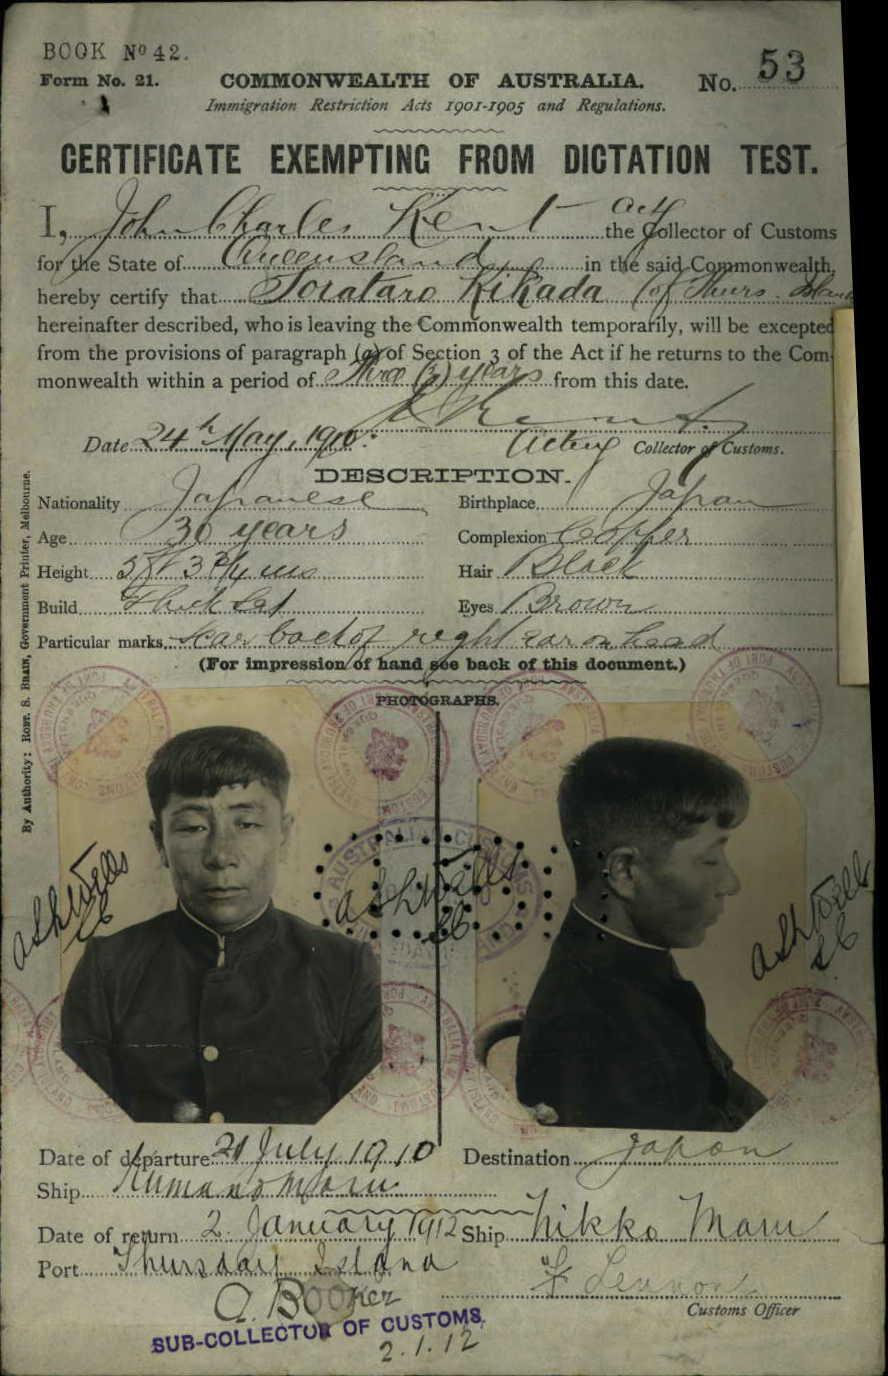 BOOK No 42.
Form No. 21.
COMMONWEALTH OF AUSTRALIA.
No. 53
Immigration Restriction Acts 1901-1905 and Regulations.
CERTIFICATE EXEMPTING FROM DICTATION TEST.
I, John Charles Kent actg the Collector of Customs
for the State of Queensland in the said Commonwealth,
hereby certify that Torataro Kikada (of Thurs. Island
hereinafter described, who is leaving the Commonwealth temporarily, will be excepted
from the provisions of paragraph (a) of Section 3 of the Act if he returns to the Com-
monwealth within a period of Three (3) years from this date.
J C Kent.
Date 24th May, 1910. Acting Collector of Customs.
DESCRIPTION.
Nationality Japanese Birthplace Japan
Age 30 years Complexion Copper
Height 5 ft 3 3/4 ins Hair Black
Build Thick Set Eyes Brown
Particular marks Scar back of right ear on head
(For impression of hand see back of this document.)
PHOTOGRAPHS.
By Authority: Robt. S. Brain, Government Printer, Melbourne.
AshWells
AshWells
AshWells
Date of departure 21 July 1910 Destination Japan
Ship Kumano Maru
Date of return 2 January 1912 Ship Nikko Maru
Port Thursday Island
Customs Officer
A. Booker
SUB-COLLECTOR OF CUSTOMS.
2.1.12